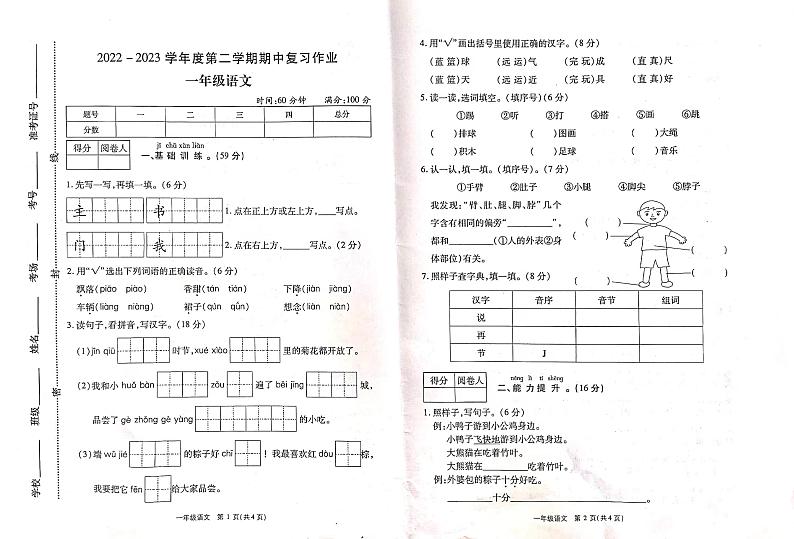 学校 班级 姓名 考场 考号 准考证号
密 封 线
2022－2023 学年度第二学期期中复习作业
一年级语文
时间:60 分钟 满分:100 分
题号 一 二 三 四 总分
分数
得分 阅卷人
jī chǔ xùn liàn
一、基 础 训 练 。(59 分)
1. 先写一写,再填一填。(6 分)
主 书 1. 点在正上方或左上方,____写点。
门 我 2. 点在右上方,______写点。(2 分)
2. 用“√”选出下列词语的正确读音。(6 分)
飘落(piāo piào) 香甜(tán tián) 下降(jiàn jiàng)
车辆(liàng niàng) 裙子(qún qǔn) 想念(liàn niàn)
3. 读句子,看拼音,写汉字。(18 分)
(1) jīn qiū 时节, xué xiào 里的菊花都开放了。
(2) 我和小 huǒ bàn zǒu 遍了 běi jīng 城,
品尝了 gè zhǒng gè yàng 的小吃。
(3) 端 wǔ jié 的粽子好 chī ！我最喜欢红 dòu 粽,
我要把它 fēn 给大家品尝。
一年级语文 第 1 页(共 4 页)
4. 用“√”画出括号里使用正确的汉字。(8 分)
(蓝 篮)球 (远 运)气 (完 玩)成 (直 真)尺
(蓝 篮)天 (远 运)近 (完 玩)具 (直 真)好
5. 读一读,选词填空。(填序号)(6 分)
①踢 ②听 ③打 ④搭 ⑤画 ⑥跳
( )排球 ( )图画 ( )大绳
( )积木 ( )足球 ( )音乐
6. 认一认,填一填。(填序号)。(7 分)
①手臂 ②肚子 ③小腿 ④脚尖 ⑤脖子
我发现:“臂、肚、腿、脚、脖”几个
字含有相同的偏旁“________”,
都和________(①人的外表②身
体部位)有关。
( ) ( ) ( ) ( ) ( )
7. 照样子查字典,填一填。(8 分)
汉字 音序 音节 组词
说
再
节 J
得分 阅卷人
néng lì tí shēng
二、能 力 提 升 。(16 分)
1. 照样子,写句子。(6 分)
例:小鸭子游到小公鸡身边。
小鸭子飞快地游到小公鸡身边。
大熊猫在吃着竹叶。
大熊猫在________吃着竹叶。
例:外婆包的粽子十分好吃。
________十分________________。
一年级语文 第 2 页(共 4 页)